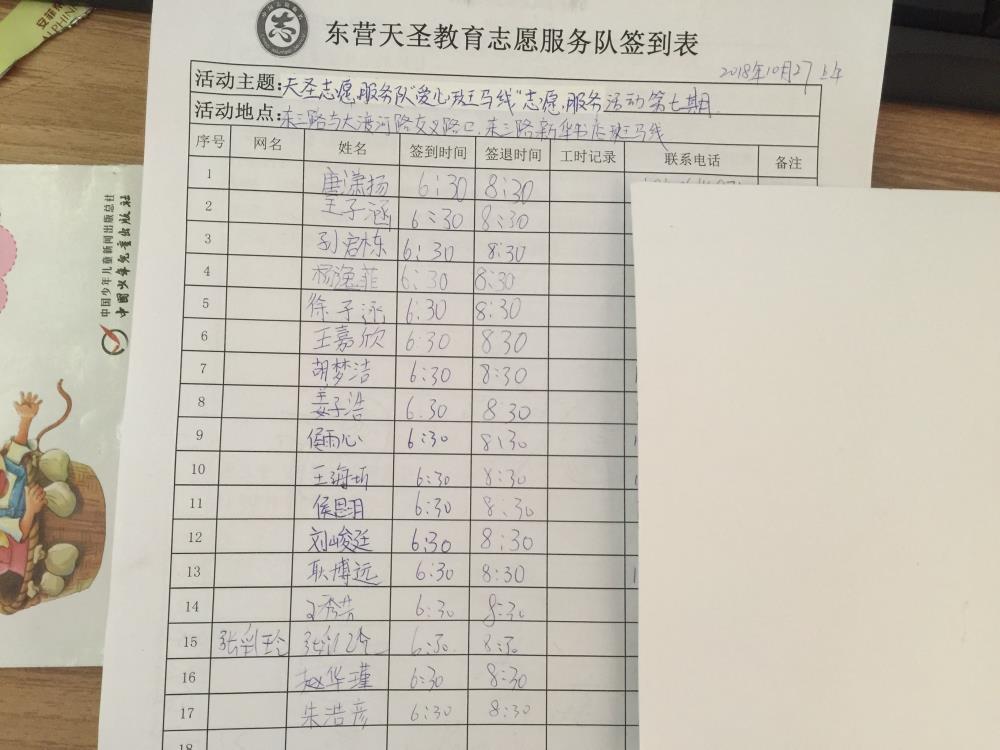 东营天圣教育志愿服务队签到表
2018年10月27上午
活动主题:天圣志愿服务队"爱心斑马线"志愿服务活动第七期
活动地点:东三路与大渡河路交叉路口,东三路新华书店斑马线
序号 网名 姓名 签到时间 签退时间 工时记录 联系电话 备注
1 唐潇扬 6:30 8:30
2 王子涵 6:30 8:30
3 孙君栋 6:30 8:30
4 杨逸菲 6:30 8:30
5 徐子涵 6:30 8:30
6 王嘉欣 6:30 8 30
7 胡梦洁 6:30 8:30
8 姜子浩 6.30 8:30
9 侯雨心 6:30 8:30
10 王海 6:30 8:30
11 侯 6:30 8:30
12 刘峻廷 6:30 8:30
13 耿博远 6:30 8:30
14 王秀芳 6:30 8:30
15 张彩玲 张彩玲 6:30 8:30
16 赵华瑾 6:30 8:30
17 朱浩彦 6:30 8:30
18
中国少年儿童新闻出版总社
中国少年儿童出版社